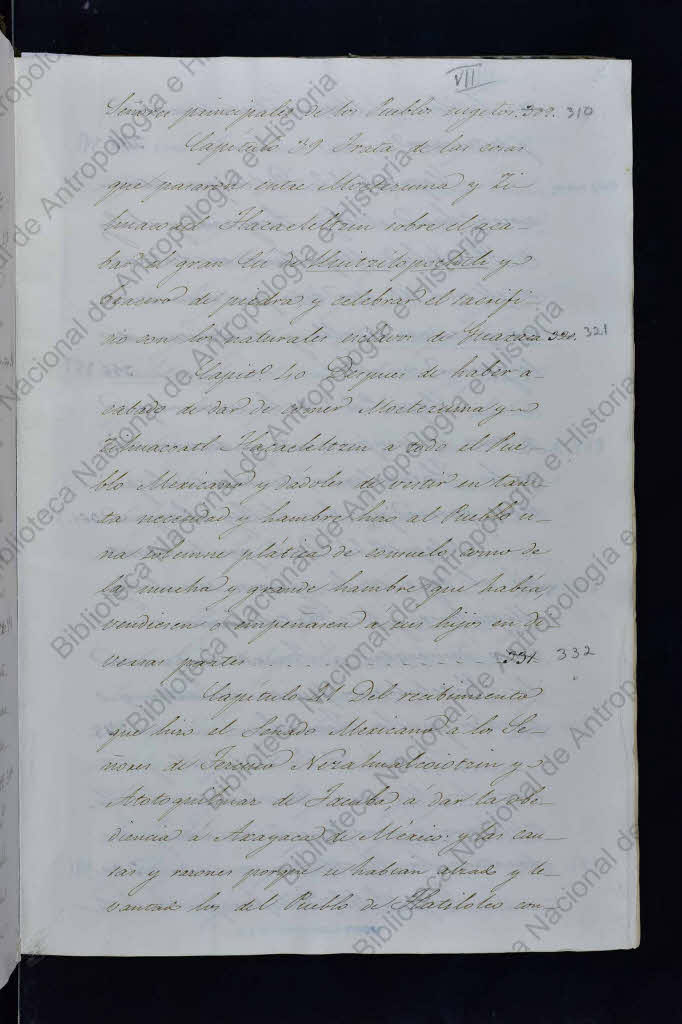 VII
Señores principales de los Pueblos sugetos. 309. 310
Capítulo 39 Trata de las cosas
que pasaron entre Moctezuma y Zi-
huacoatl Tlacaeleltzin sobre el aca-
bar el gran Cú de Huitzilopochtli y
brasero de piedra y celebrar el sacrifi-
cio con los naturales esclavos de Guaxaca 320. 321
Capito. 40 Despues de haber a-
cabado de dar de comer Moctezuma y
Zihuacoatl Tlacaeleltzin a todo el Pue-
blo Mexicano y dádoles de vestir en tan-
ta necesidad y hambre hizo al Pueblo u-
na solemne plática de consuelo como de
la mucha y grande hambre que había
vendiesen o empeñasen á sus hijos en di
versas partes 331. 332
Capítulo 41 Del recibimiento
que hizo el Senado Mexicano á los Se-
ñores de Tezcuco Nezahualcoiotzin y
Totoquihuaz de Tacuba, á dar la obe-
diencia á Axayaca de México y las cau-
sas y razones porque se habian alzado y le-
vantado los del Pueblo de Tlatilolco con-
Biblioteca Nacional de Antropología e Historia